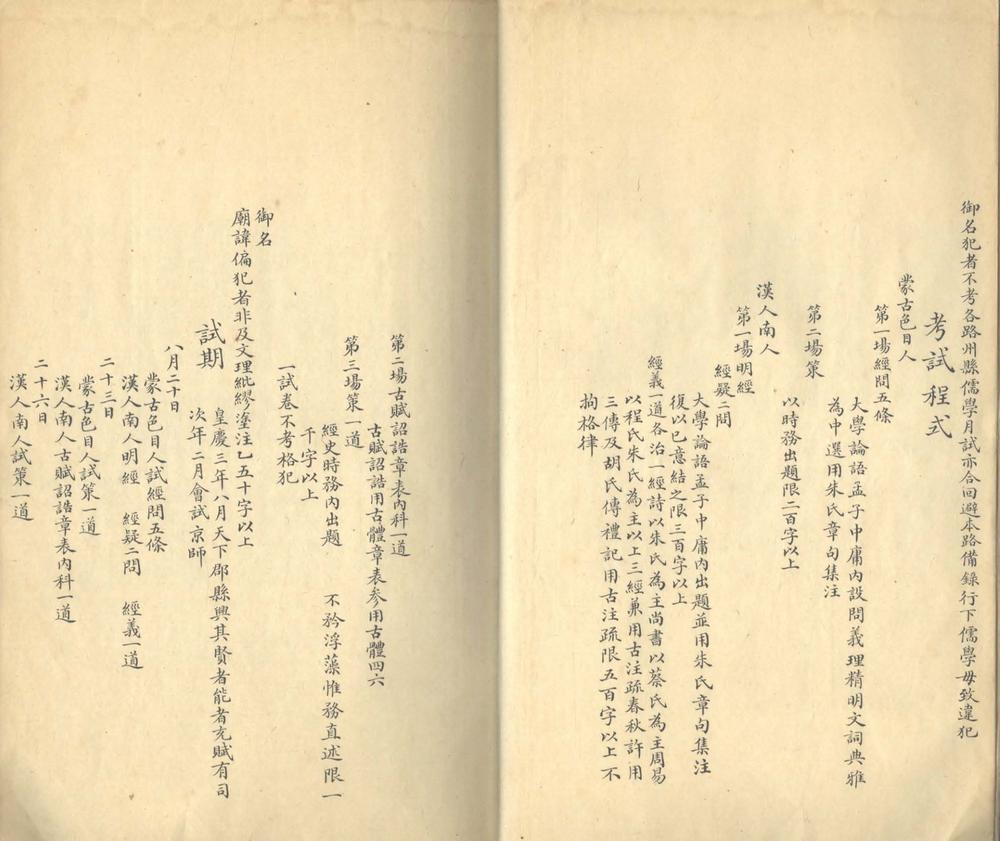 御名犯者不考各路州縣儒學月試亦合回避本路備錄行下儒學毋致違犯
考試程式
蒙古色目人
第一場經問五條
大學論語孟子中庸內設問義理精明文詞典雅
為中選用朱氏章句集注
第二場策
以時務出題限二百字以上
漢人南人
第一場明經
經疑二問
大學論語孟子中庸內出題並用朱氏章句集注
復以已意結之限三百字以上
經義一道各治一經詩以朱氏為主尚書以蔡氏為主周易
以程氏朱氏為主以上三經兼用古注疏春秋許用
三傳及胡氏傳禮記用古注疏限五百字以上不
拘格律
第二場古賦詔誥章表內科一道
古賦詔誥用古體章表參用古體四六
第三場策一道
經史時務內出題 不矜浮藻惟務直述限一
千字以上
一試卷不考格犯
御名
廟諱偏犯者非及文理紕繆塗注乙五十字以上
試期
皇慶三年八月天下郡縣興其賢者能者充賦有司
次年二月會試京師
八月二十日
蒙古色目人試經問五條
漢人南人明經 經疑二問 經義一道
二十三日
蒙古色目人試策一道
漢人南人古賦詔誥章表內科一道
二十六日
漢人南人試策一道